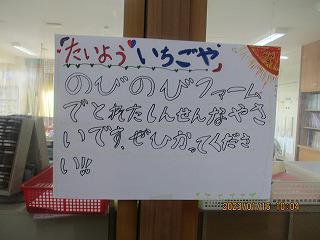 たいよう いちごや
のびのびファーム
でとれたしんせんなやさ
いです。ぜひかってくださ
い!!
2023/01/16 10:04